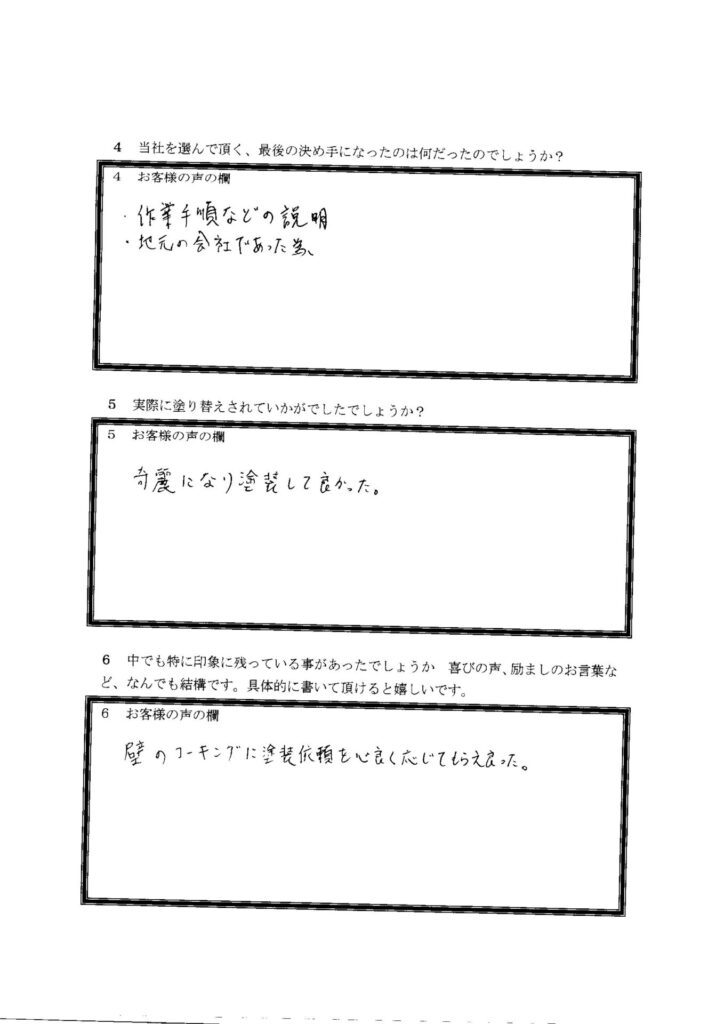 4 当社を選んで頂く、最後の決め手になったのは何だったのでしょうか？
4 お客様の声の欄
・作業手順などの説明
・地元の会社であった為、
5 実際に塗り替えされていかがでしたでしょうか？
5 お客様の声の欄
奇麗になり塗装して良かった。
6 中でも特に印象に残っている事があったでしょうか 喜びの声、励ましのお言葉な
ど、なんでも結構です。具体的に書いて頂けると嬉しいです。
6 お客様の声の欄
壁のコーキングに塗装依頼を心良く応じてもらえ良った。